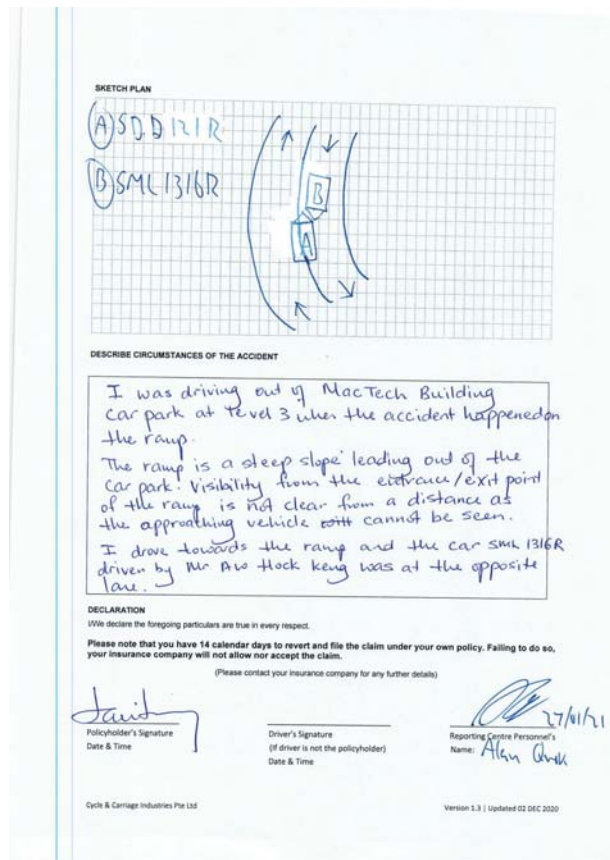 SKETCH PLAN
A SDD 121R
B SML 1316R
B
A
DESCRIBE CIRCUMSTANCES OF THE ACCIDENT
I was driving out of MacTech Building
car park at level 3 when the accident happened on
the ramp.
The ramp is a steep slope leading out of the
car park. Visibility from the entrance/exit point
of the ramp is not clear from a distance as
the approaching vehicle cannot be seen.
I drove towards the ramp and the car SML 1316R
driven by Mr Aw Hock Keng was at the opposite
lane.
DECLARATION
I/We declare the foregoing particulars are true in every respect.
Please note that you have 14 calendar days to revert and file the claim under your own policy. Failing to do so,
your insurance company will not allow nor accept the claim.
(Please contact your insurance company for any further details)
27/01/21
Policyholder's Signature
Date & Time
Driver's Signature
(If driver is not the policyholder)
Date & Time
Reporting Centre Personnel's
Name: Alan Quek
Cycle & Carriage Industries Pte Ltd
Version 1.3 | Updated 02 DEC 2020